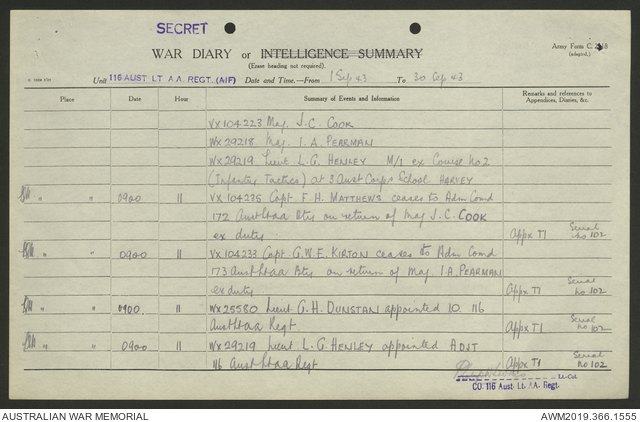 SECRET
WAR DIARY or INTELLIGENCE SUMMARY
(Erase heading not required).
Army Form C.
(adapted.)
Unit 116 AUST LT. A.A. REGT. (AIF) Date and Time.—From 1 Sep 43 To 30 Sep 43
Place Date Hour Summary of Events and Information Remarks and references to Appendices, Diaries, &c.
VX104223 Maj. J.C. COOK
WX29218 Maj. I.A. PEARMAN
WX29219 Lieut L.G. HENLEY M/I ex Course No 2
(Infantry Tactics) at 3 Aust Corps School HARVEY
" " 0900 11 VX104235 Capt. F.H. MATTHEWS ceases to Adm Comd
172 Aust Ltaa Bty on return of Maj J.C. COOK
ex duties Appx T1 Serial No 102
" " 0900 11 VX104233 Capt. G.W.E. KIRTON ceases to Adm Comd
173 Aust Ltaa Bty on return of Maj. I.A. PEARMAN
ex duties Appx T1 Serial No 102
" " 0900. 11 WX25580 Lieut G.H. DUNSTAN appointed IO 116
Aust Ltaa Regt. Appx T1 Serial No 102
" " 0900 11 WX29219 Lieut L.G. HENLEY appointed ADJT
116 Aust Ltaa Regt Appx T1 Serial No 102
Lt-Col
CO. 116 Aust Lt. AA. Regt.
AUSTRALIAN WAR MEMORIAL AWM2019.366.1555